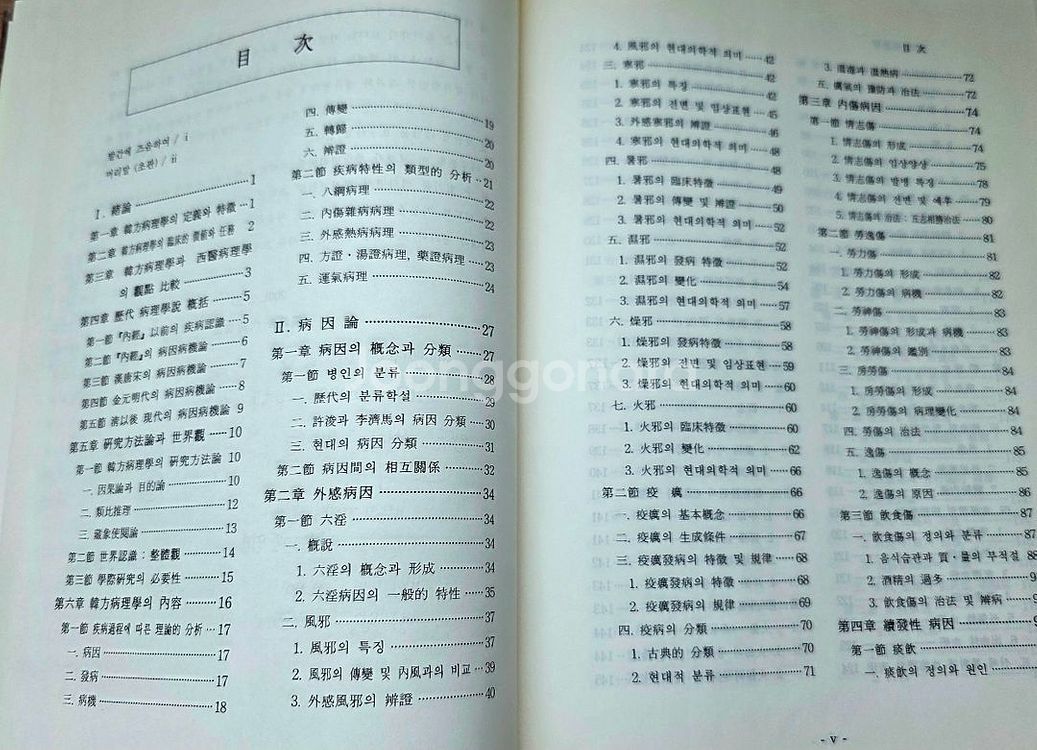 目 次
발간에 즈음하여 / i
머리말 (초판) / ii
Ⅰ. 緖論 1
第一章 韓方病理學의 定義와 特徵 1
第二章 韓方病理學의 臨床的 價値와 任務 2
第三章 韓方病理學과 西醫病理學
의 觀點 比較 3
第四章 歷代 病理學說 槪括 5
第一節 『內經』 以前의 疾病認識 5
第二節 『內經』의 病因病機論 6
第三節 漢唐宋의 病因病機論 7
第四節 金元明代의 病因病機論 8
第五節 淸以後 現代의 病因病機論 9
第五章 硏究方法論과 世界觀 10
第一節 韓方病理學의 硏究方法論 10
一. 因果論과 目的論 10
二. 類比推理 12
三. 藏象使閱論 13
第二節 世界認識 : 整體觀 14
第三節 學際硏究의 必要性 15
第六章 韓方病理學의 內容 16
第一節 疾病過程에 따른 理論的 分析 17
一. 病因 17
二. 發病 17
三. 病機 18
四. 傳變 19
五. 轉歸 20
六. 辨證 20
第二節 疾病特性의 類型的 分析 21
一. 八綱病理 22
二. 內傷雜病病理 22
三. 外感熱病病理 23
四. 方證·湯證病理, 藥證病理 23
五. 運氣病理 24
Ⅱ. 病因論 27
第一章 病因의 槪念과 分類 27
第一節 병인의 분류 28
一. 歷代의 분류학설 29
二. 許浚과 李濟馬의 病因 分類 30
三. 현대의 病因 分類 31
第二節 病因間의 相互關係 32
第二章 外感病因 34
第一節 六淫 34
一. 槪說 34
1. 六淫의 槪念과 形成 34
2. 六淫病因의 一般的 特性 35
二. 風邪 37
1. 風邪의 특징 37
2. 風邪의 傳變 및 內風과의 비교 39
3. 外感風邪의 辨證 40
4. 風邪의 현대의학적 의미 42
三. 寒邪 42
1. 寒邪의 특징 42
2. 寒邪의 전변 및 임상표현 45
3. 外感寒邪의 辨證 46
4. 寒邪의 현대의학적 의미 48
四. 暑邪 48
1. 暑邪의 臨床特徵 49
2. 暑邪의 傳變 및 辨證 50
3. 暑邪의 현대의학적 의미 52
五. 濕邪 52
1. 濕邪의 發病 特徵 52
2. 濕邪의 變化 54
3. 濕邪의 현대의학적 의미 57
六. 燥邪 58
1. 燥邪의 發病特徵 58
2. 燥邪의 전변 및 임상표현 59
3. 燥邪의 현대의학적 의미 60
七. 火邪 60
1. 火邪의 臨床特徵 60
2. 火邪의 變化 62
3. 火邪의 현대의학적 의미 66
第二節 疫 癘 66
一. 疫癘의 基本槪念 66
二. 疫癘의 生成條件 67
三. 疫癘發病의 特徵 및 規律 68
1. 疫癘發病의 特徵 68
2. 疫癘發病의 規律 69
四. 疫病의 分類 70
1. 古典的 分類 70
2. 현대적 분류 71
目 次
3. 溫毒과 濕熱病 72
五. 癘氣의 豫防과 治法 72
第三章 內傷病因 74
第一節 情志傷 74
1. 情志傷의 形成 74
2. 情志傷의 임상양상 75
3. 情志傷의 발병 특징 78
4. 情志傷의 전변 및 예후 79
5. 情志傷의 治法 : 五志相勝治法 80
第二節 勞逸傷 81
一. 勞力傷 81
1. 勞力傷의 形成 82
2. 勞力傷의 病機 82
二. 勞神傷 83
1. 勞神傷의 形成과 病機 83
2. 勞神傷의 鑑別 83
三. 房勞傷 84
1. 房勞傷의 形成 84
2. 房勞傷의 病理變化 84
四. 勞傷의 治法 84
五. 逸傷 85
1. 逸傷의 槪念 85
2. 逸傷의 原因 86
第三節 飮食傷 87
一. 飮食傷의 정의와 분류 87
1. 음식습관과 質·量의 부적절 88
2. 酒精의 過多
3. 飮食傷의 治法 및 辨病
第四章 續發性 病因
第一節 痰飮
一. 痰飮의 정의와 원인
- v -